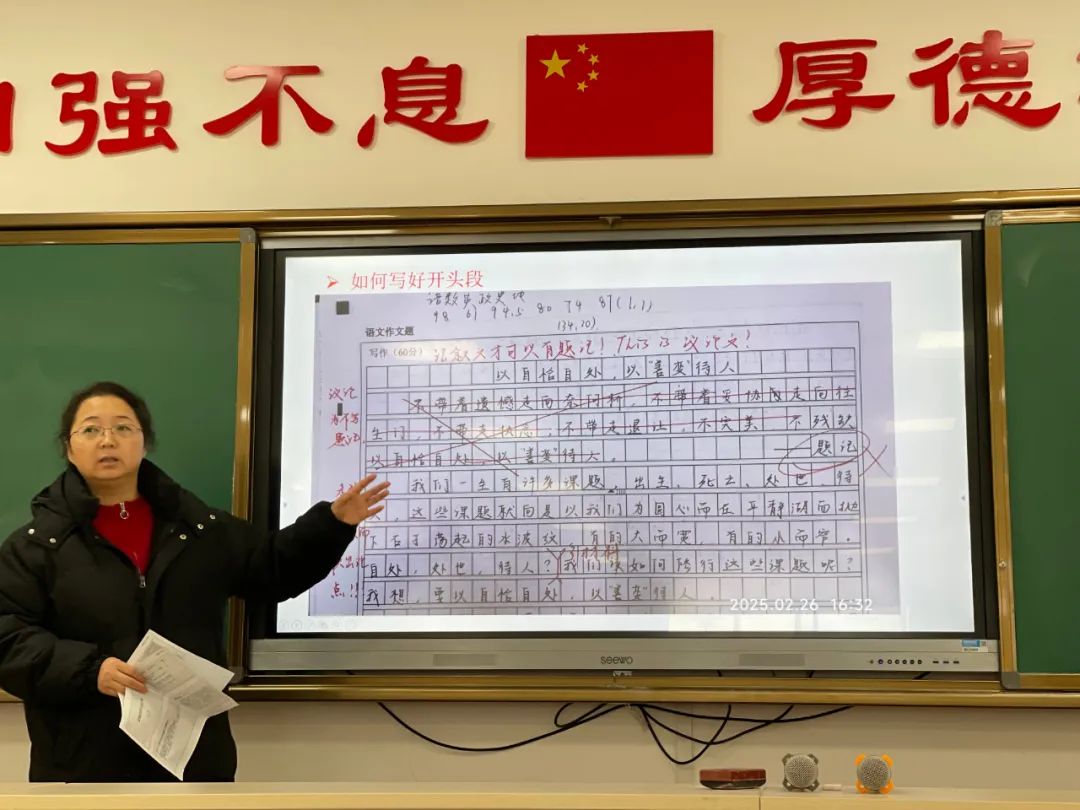 强不息
厚德
如何写好开头段
语数英政史地
98 61 94.5 80 74 87(1.1)
(34,20)
语文作文题
写作(60分) 记叙文才可以有题记! This is 议论文?
以自恰自处,以“善变”待人
议论
不带着遗憾走向奈何桥,不带着妥协感走向往
题记
生门,不带走执念,不带走退让,不完美 不残缺
以自恰自处,以“善变”待人。
题记
我们一生有许多课题,出生,死去,处世,待
人,这些课题就向是以我们为圆心而在平静湖面抛
下石子荡起的水波纹,有的大而宽,有的小而窄。
引材料
自处,处世,待人?我们该如何践行这些课题呢?
点!!
我想,要以自恰自处,以“善变”待人。
2025.02.26 16:32
seewo